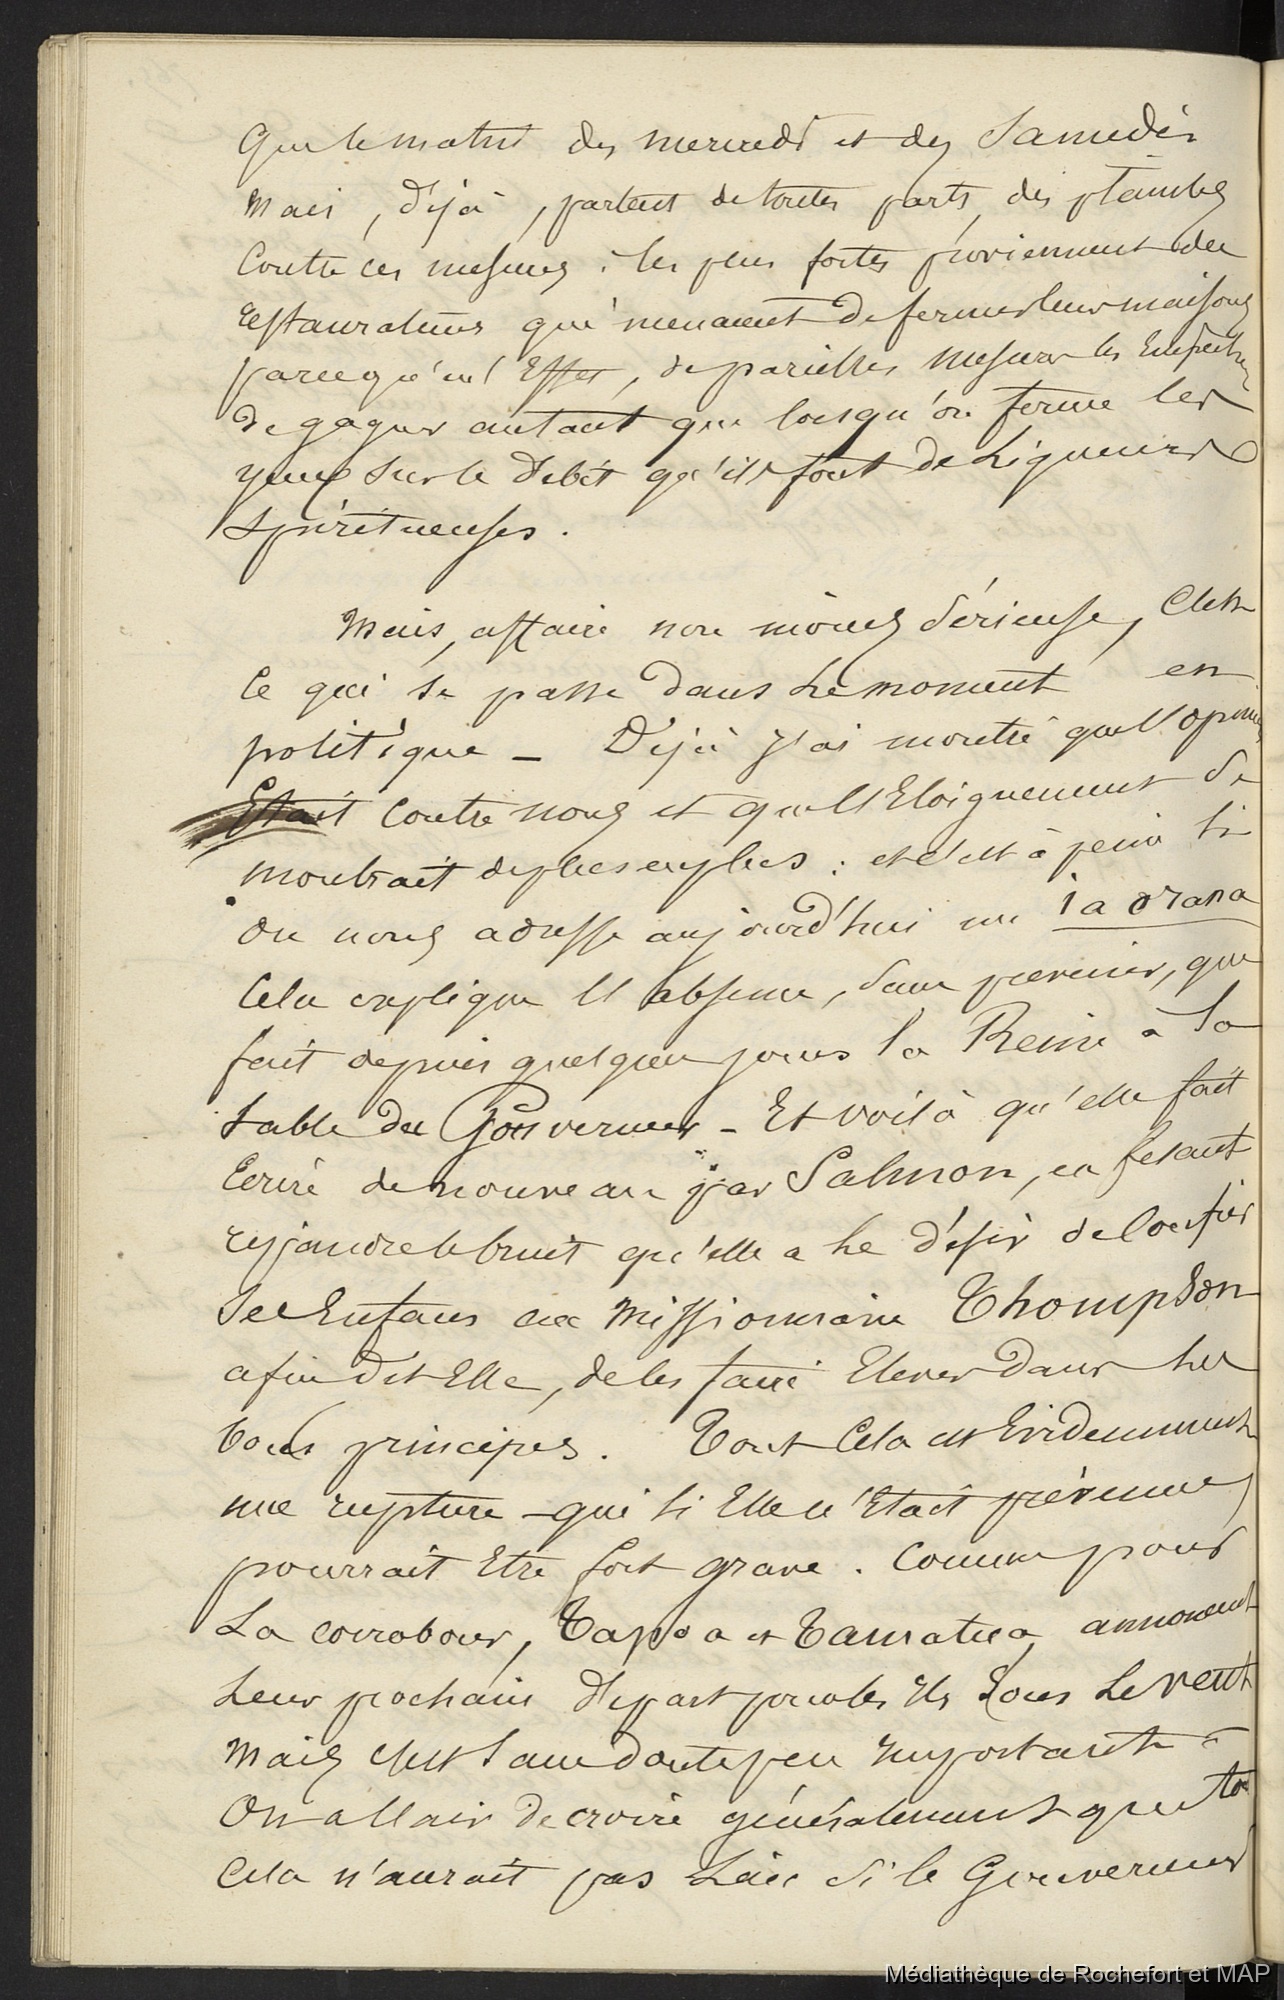 que le matin des mercredi et des Samedis
mais, déjà, partent de toutes parts, des plaintes
Contre ces mesures : les plus fortes proviennent des
restaurateurs qui menacent de fermer leurs maisons
parcequ'en Effet, de pareilles mesures les Empêchent
de gagner autant que lorsqu'on ferme les
yeux sur le débit qu'ils font de Liqueurs
Spiritueuses.
Mais, affaire non moins Sérieuse, C'est
Ce qui se passe dans le moment en
politique - Déjà j'ai montré que l'opinion
Etait Contre nous et que l'Eloignement se
montrait de plus en plus : et c'est à peine si
on nous adresse aujourd'hui un ia orana
Cela explique l'absence, sans prévenir, que
fait depuis quelques jours la Reine à la
table du Gouverneur - Et voilà qu'elle fait
Ecrire de nouveau par Salmon, en fesant
répandre le bruit qu'elle a le désir de confier
Ses Enfans au Missionnaire Thompson
afin dit Elle, de les faire Elever dans les
bons principes. Tout Cela est Evidemment
une rupture - qui si Elle n'Etait prévenue
pourrait Etre fort grave. Comme pour
La corroborer, Tapoa et annoncent
Leur prochain départ pour les Iles Sous Le vent
Mais c'est sans doute peu important -
On a l'air de croire généralement que tout
Cela n'aurait pas Lieu si le Gouverneur
Médiathèque de Rochefort et MAP